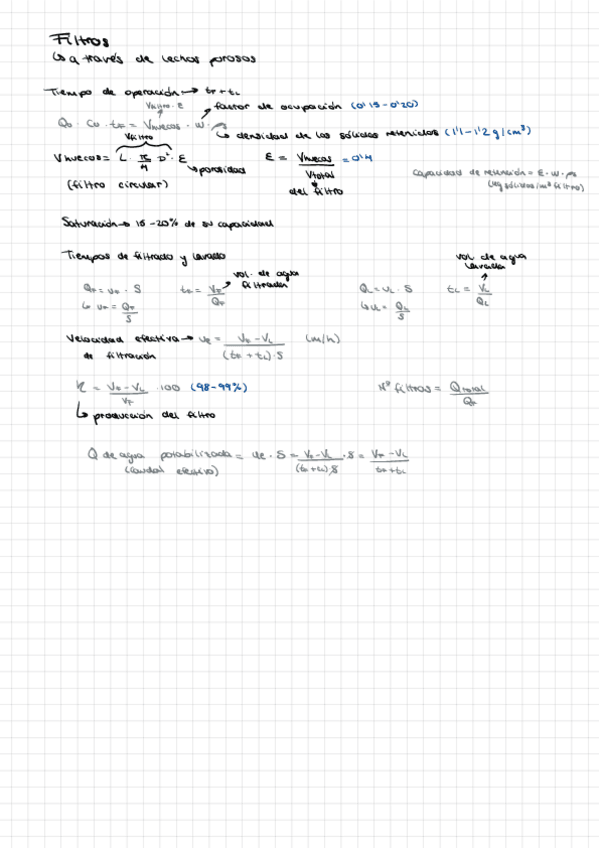 Filtros
↳ a través de lechos porosos
Tiempo de operación → tF + tL
Vfiltro · ε
factor de ocupación (0'15-0'20)
Q0 · C0 · tF = Vhuecos · w · ρ
↳ densidad de los sólidos retenidos (1'1-1'2 g/cm³)
Vfiltro
Vhuecos = L · π/4 D² · ε
↳ porosidad
(filtro circular)
ε = Vhuecos/Vtotal = 0'4
del filtro
Capacidad de retención = ε · w · ρs
(kg sólidos/m³ filtro)
Saturación → 15-20% de su capacidad
Tiempos de filtrado y lavado
QF = uF · S
↳ uF = QF/S
tF = VF/QF
vol. de agua filtrada
QL = uL · S
↳ uL = QL/S
tL = VL/QL
vol. de agua lavada
Velocidad efectiva → ue = VF - VL / (tF + tL) · S (m/h)
de filtración
η = VF - VL / VF · 100 (98-99%)
↳ producción del filtro
Nº filtros = Qtotal/QF
Q de agua potabilizada = ue · S = VF - VL / (tF + tL) · S · S = VF - VL / tF + tL
(caudal efectivo)